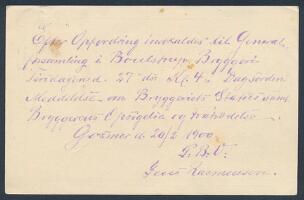 Efter Opfordring indkaldes til General-
forsamling i Boelstrup Bryggeri
Tirsdag d. 27' ds Kl. 4. Dagsorden
Meddelelse om Bryggeriets Status samt
Bryggeriets Opsigelse og
Gosmer d. 20/2 1900
P. B. V.
Rasmussen.